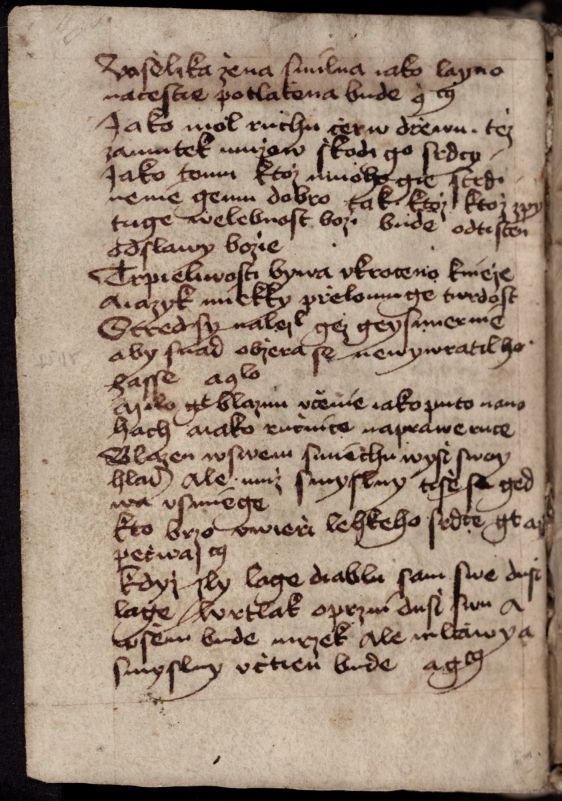 Wsselika žena smilna iako layno
nacestie potlačena bude
Jako mol ruchu čerw dřewu téz
zamutek mužow sskodi go srdcy
Jako tomu ktoz mnoho gie strdi
nenie gemu dobro tak ktoz ktoz zpy
tuge welebnost bozi bude odtisčen
odslawy bozie
Trpieliwosti bywa vkroceno knieze
Aiazyk miekky přelomuge twrdost
Stred sy nalezl gez geysmiernie
aby snad obzera se newywratil ho
hasse
Milo gt blaznu včenie iako puto nano
hach aiako ručnice naprawe ruce
Blazen wswem smiechu wysi swoy
hlas Ale muz smyslny tisse se ged
wa vsmiege
kto brzo vwieri lehkeho srdce gt
kdyz zly lage diablu sam swe dusi
lage wrtlak oprzni dusi swu A
wssem bude mrzek Ale mlčawy a
smyslny včtien bude